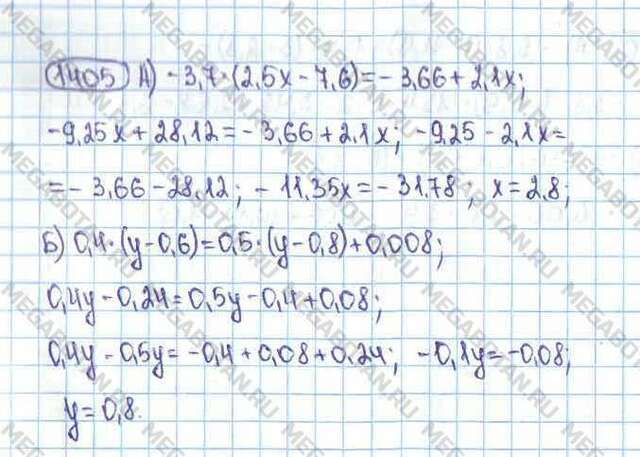 1405 А) -3,7·(2,5x-7,6)=-3,66+2,1x;
-9,25x+28,12=-3,66+2,1x; -9,25-2,1x=
=-3,66-28,12; -11,35x=-31,78; x=2,8;
Б) 0,4·(y-0,6)=0,5·(y-0,8)+0,008;
0,4y-0,24=0,5y-0,4+0,08;
0,4y-0,5y=-0,4+0,08+0,24; -0,1y=-0,08;
y=0,8.
MEGABOTAN.RU